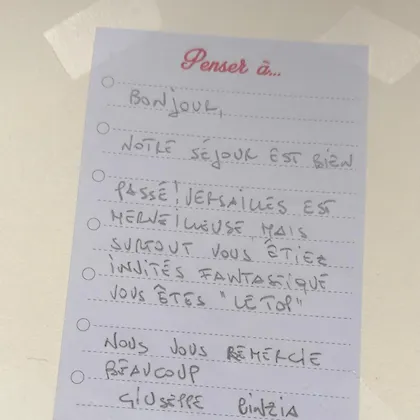 Penser à...
BONJOUR,
NOTRE SÉJOUR EST BIEN
PASSÉ! VERSAILLES EST
MERVEILLEUSE MAIS
SURTOUT VOUS ÊTIEZ
INVITÉS FANTASTIQUE
VOUS ÊTES "LE TOP"
NOUS VOUS REMERCIE
BEAUCOUP
GIUSEPPE CINZIA